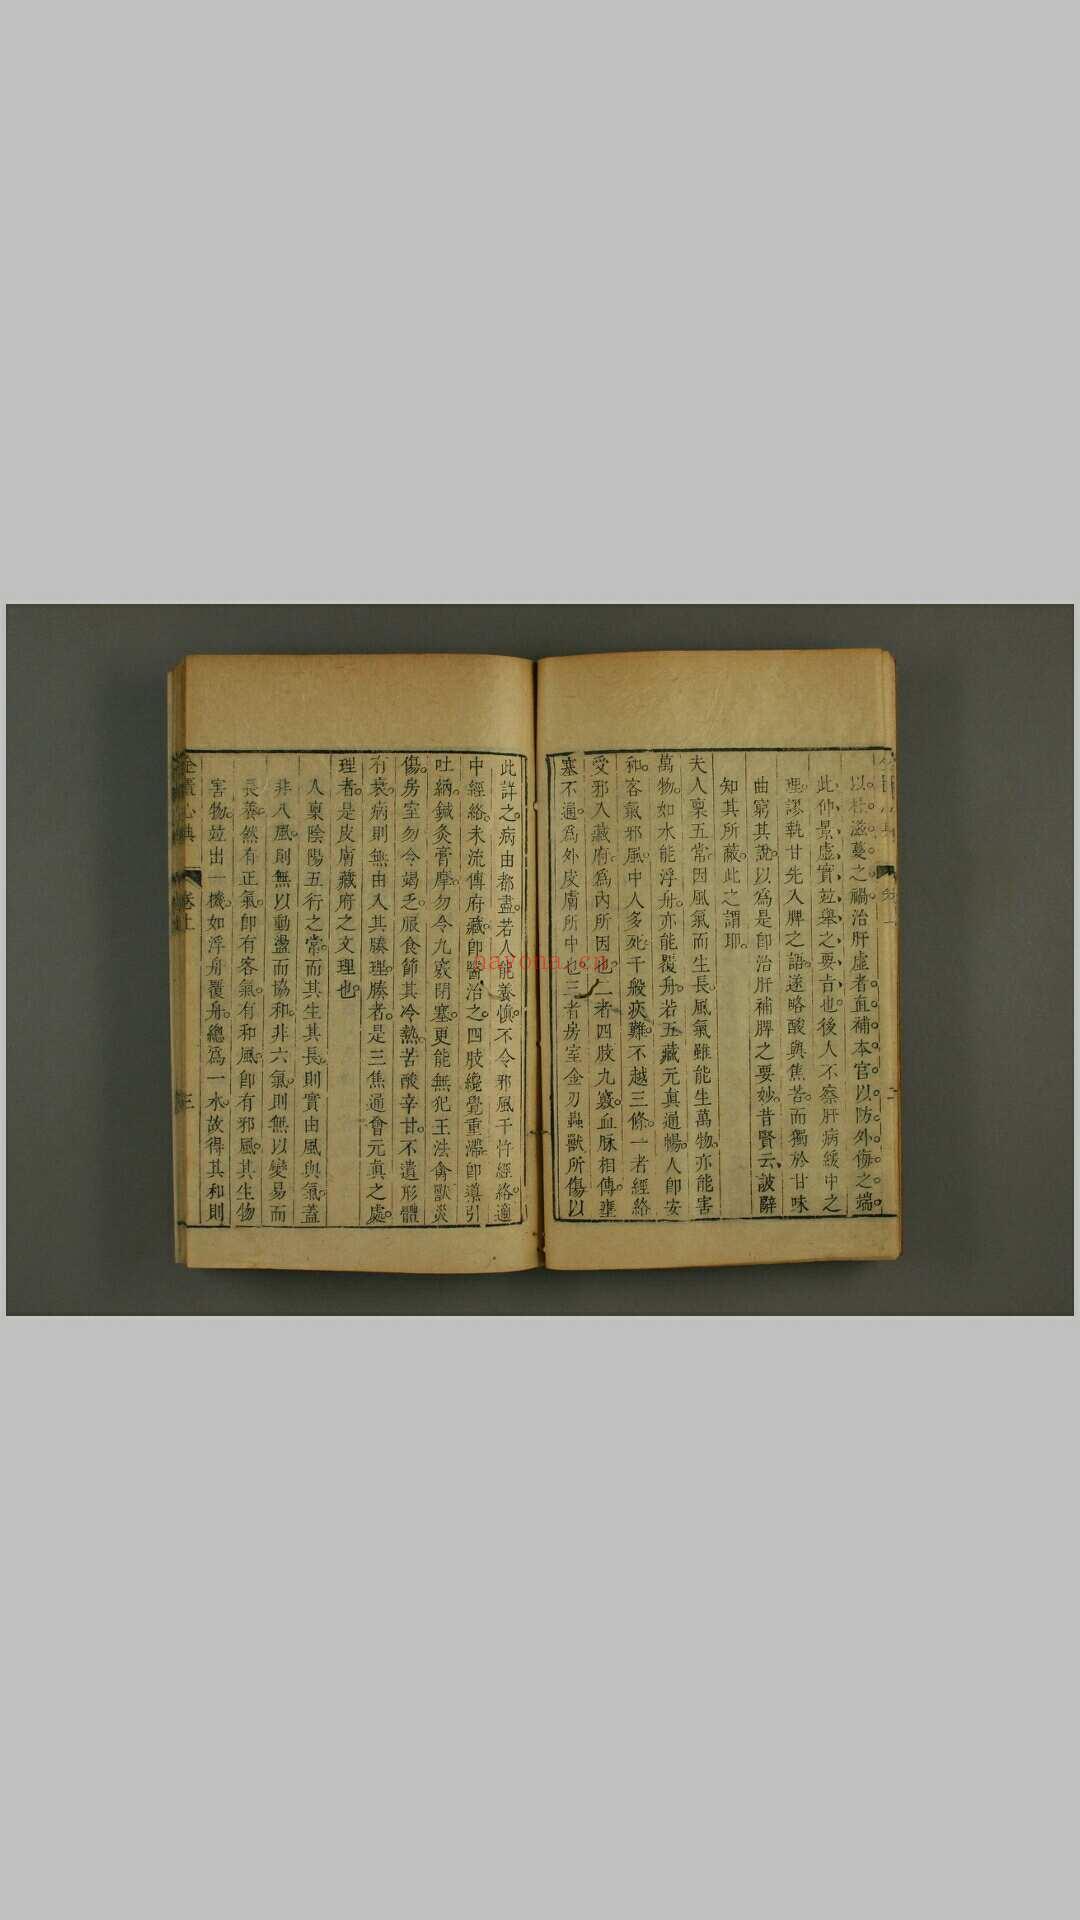 以杜滋蔓之禍治肝虛者直補本宮以防外侮之端
此仲景虛實竝舉之要旨也後人不察肝病緩中之
理謬執甘先入脾之語遂略酸與焦苦而獨於甘味
曲窮其說以爲是卽治肝補脾之要妙昔賢云詖辭
知其所蔽此之謂耶
夫人稟五常因風氣而生長風氣雖能生萬物亦能害
萬物如水能浮舟亦能覆舟若五藏元眞通暢人卽安
和客氣邪風中人多死千般疢難不越三條一者經絡
受邪入藏府爲內所因也二者四肢九竅血脈相傳壅
塞不通爲外皮膚所中也三者房室金刃蟲獸所傷以
此詳之病由都盡若人能養愼不令邪風干忤經絡適
中經絡未流傳府藏卽醫治之四肢纔覺重滯卽導引
吐納鍼灸膏摩勿令九竅閉塞更能無犯王法禽獸災
傷房室勿令竭乏服食節其冷熱苦酸辛甘不遺形體
有衰病則無由入其腠理腠者是三焦通會元眞之處
理者是皮膚藏府之文理也
人稟陰陽五行之常而其生其長則實由風與氣蓋
非八風則無以動盪而協和非六氣則無以變易而
長養然有正氣卽有客氣有和風卽有邪風其生物
害物竝出一機如浮舟覆舟總爲一水故得其和則
金匱心典
卷上
三
nayona.cn